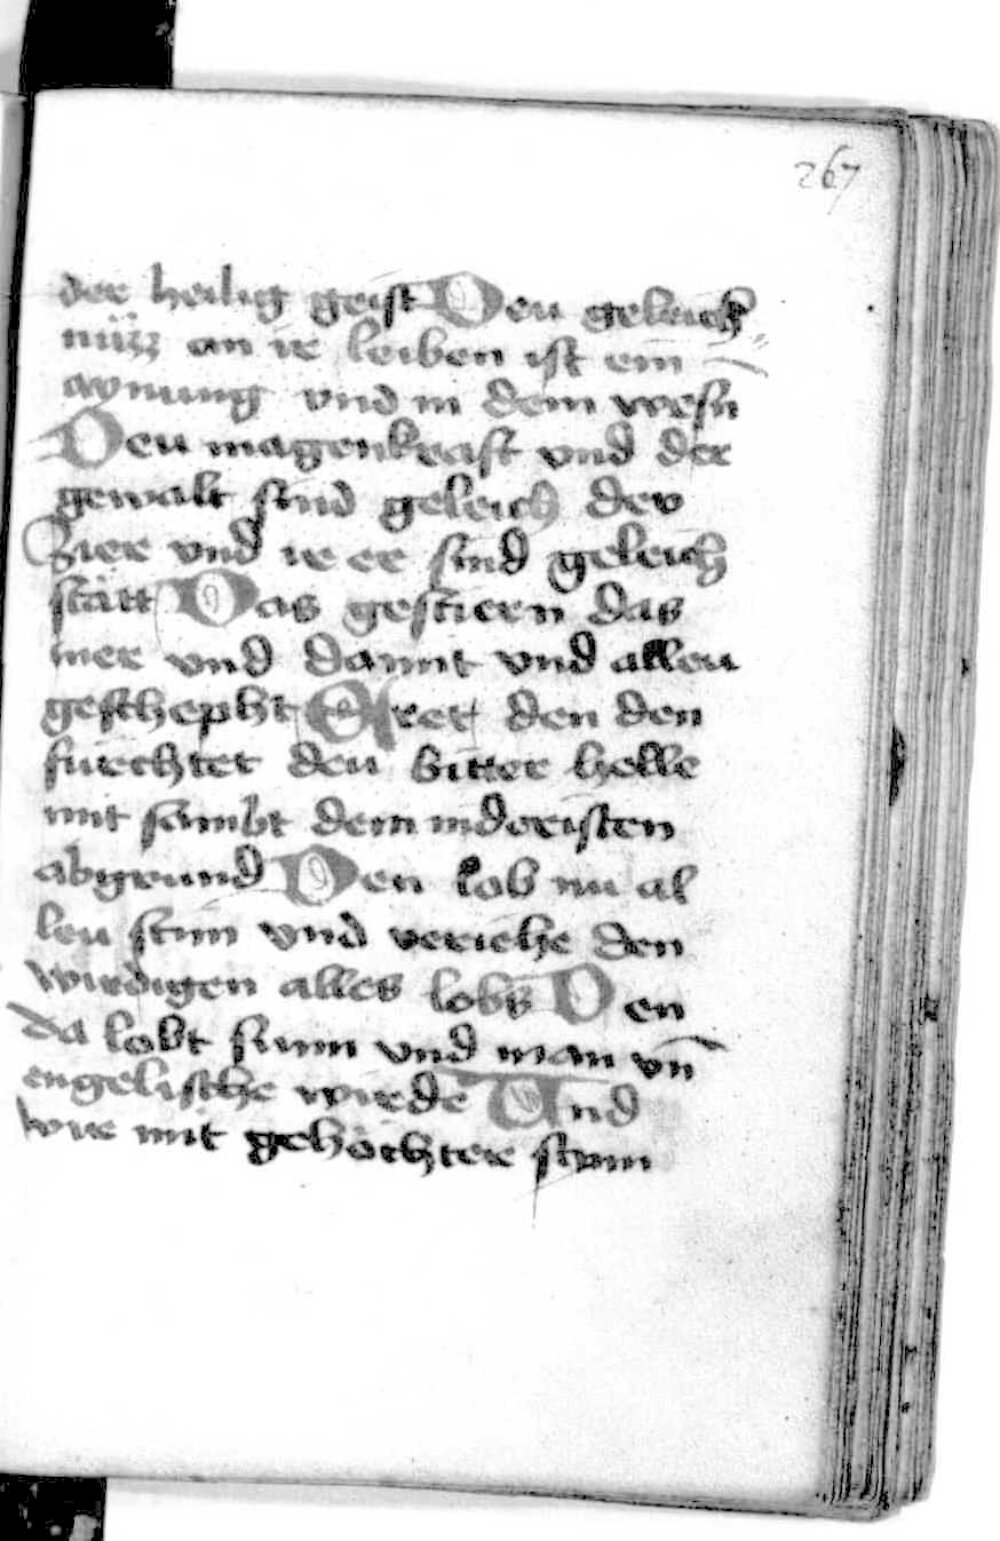 267
der heilig geist Den geleich
nüzz an ir leiben ist ein
aynung vnd in dem wesn
Deu magenkraft vnd der
gewalt sind geleich der
Zier vnd ir er sind geleich
stätt Das gestiern das
mer vnd damit vnd allew
geschepht Eret den den
fürchtet deu bitter helle
mit sambt dem indristen
abgrund Den lob nu al
leu stim vnd veriehe den
wirdigen alles lobs Den
da lobt sunn vnd man vn̄
engelische wirde Und
wir mit gehöchter stym